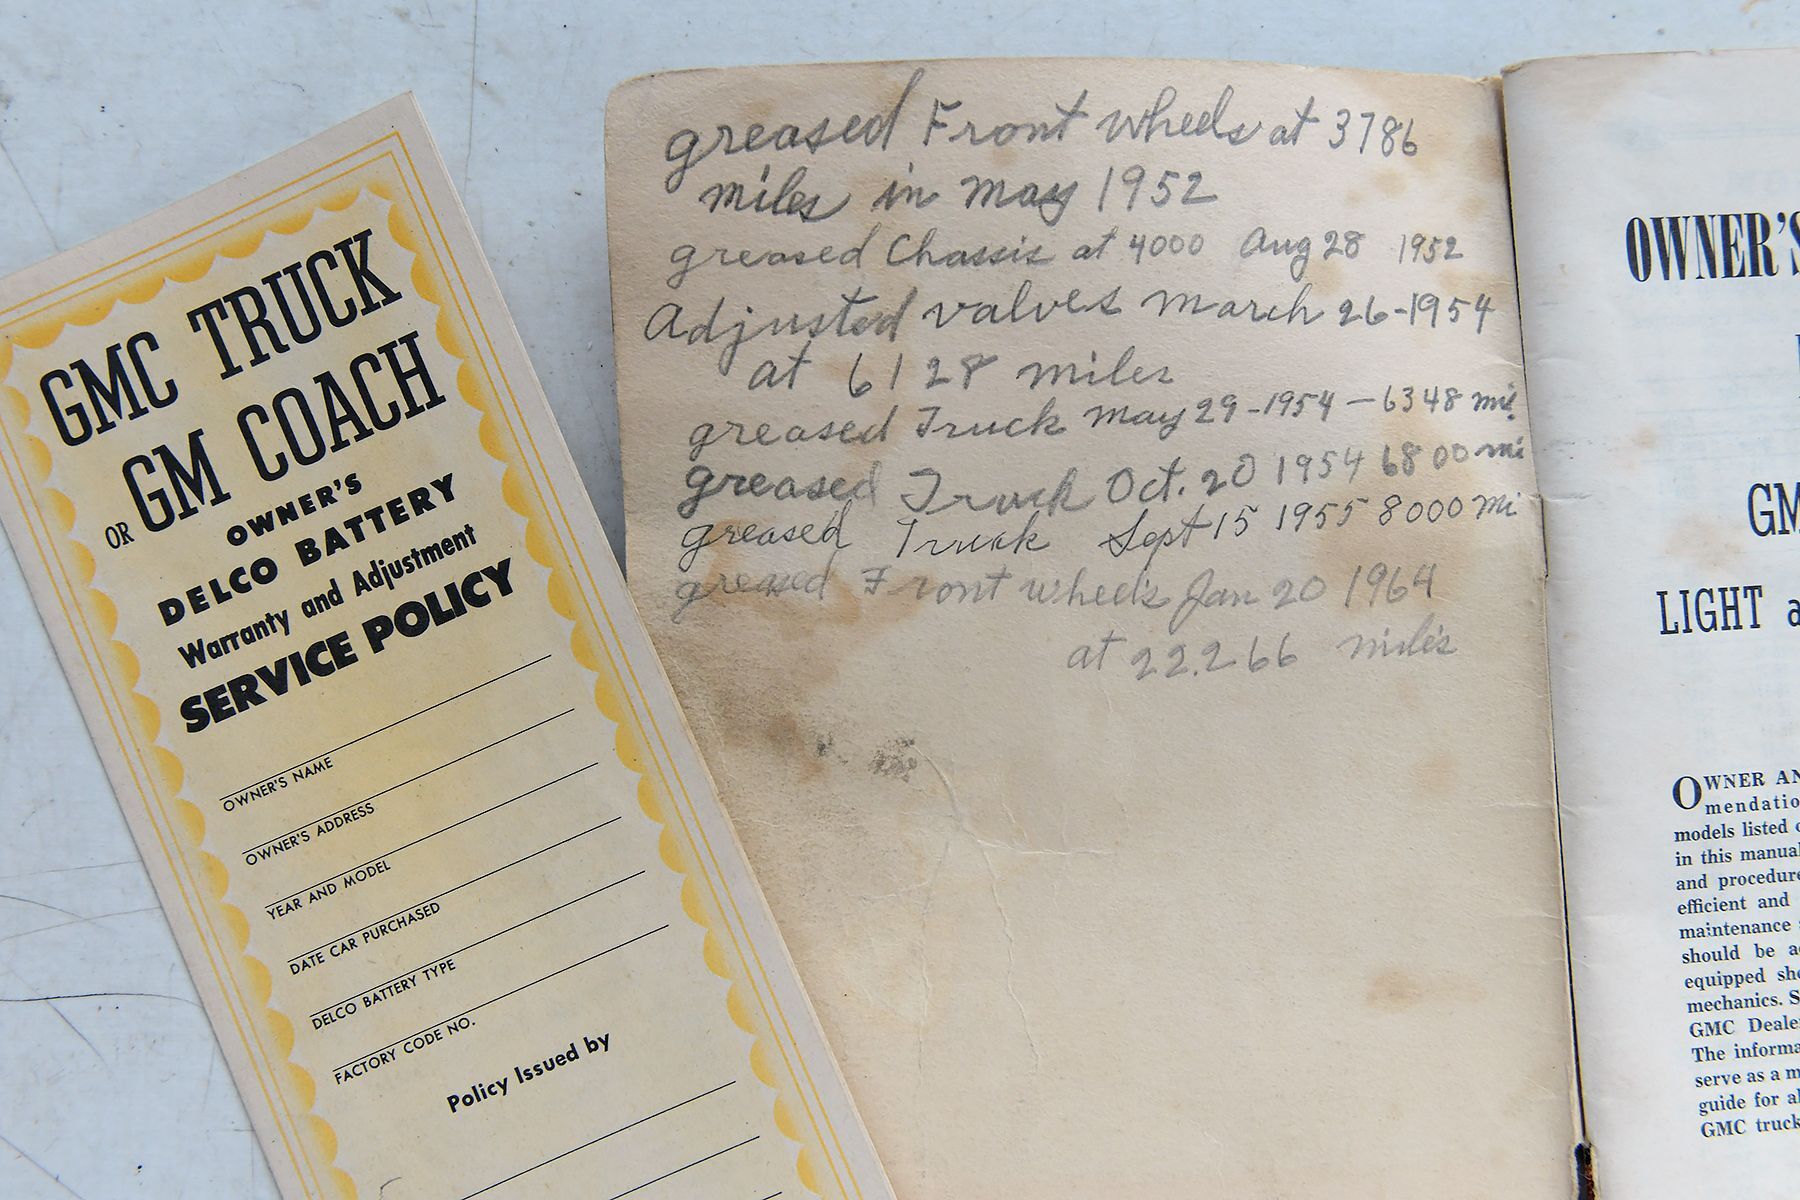 GMC TRUCK
OR GM COACH
OWNER'S
DELCO BATTERY
Warranty and Adjustment
SERVICE POLICY
OWNER'S NAME
OWNER'S ADDRESS
YEAR AND MODEL
DATE CAR PURCHASED
DELCO BATTERY TYPE
FACTORY CODE NO.
Policy Issued by
greased Front wheels at 3786
miles in may 1952
greased Chassis at 4000 Aug 28 1952
Adjusted valves march 26-1954
at 6128 miles
greased Truck may 29-1954 - 6348 mi.
greased Truck Oct. 20 1954 6800 mi
greased Truck Sept 15 1955 8000 mi
greased Front wheels Jan 20 1964
at 22.266 miles
OWNER'S
GM
LIGHT a
OWNER AN
mendatio
models listed
in this manual
and procedure
efficient and
maintenance
should be a
equipped sho
mechanics. S
GMC Deale
The informa
serve as a m
guide for al
GMC truck